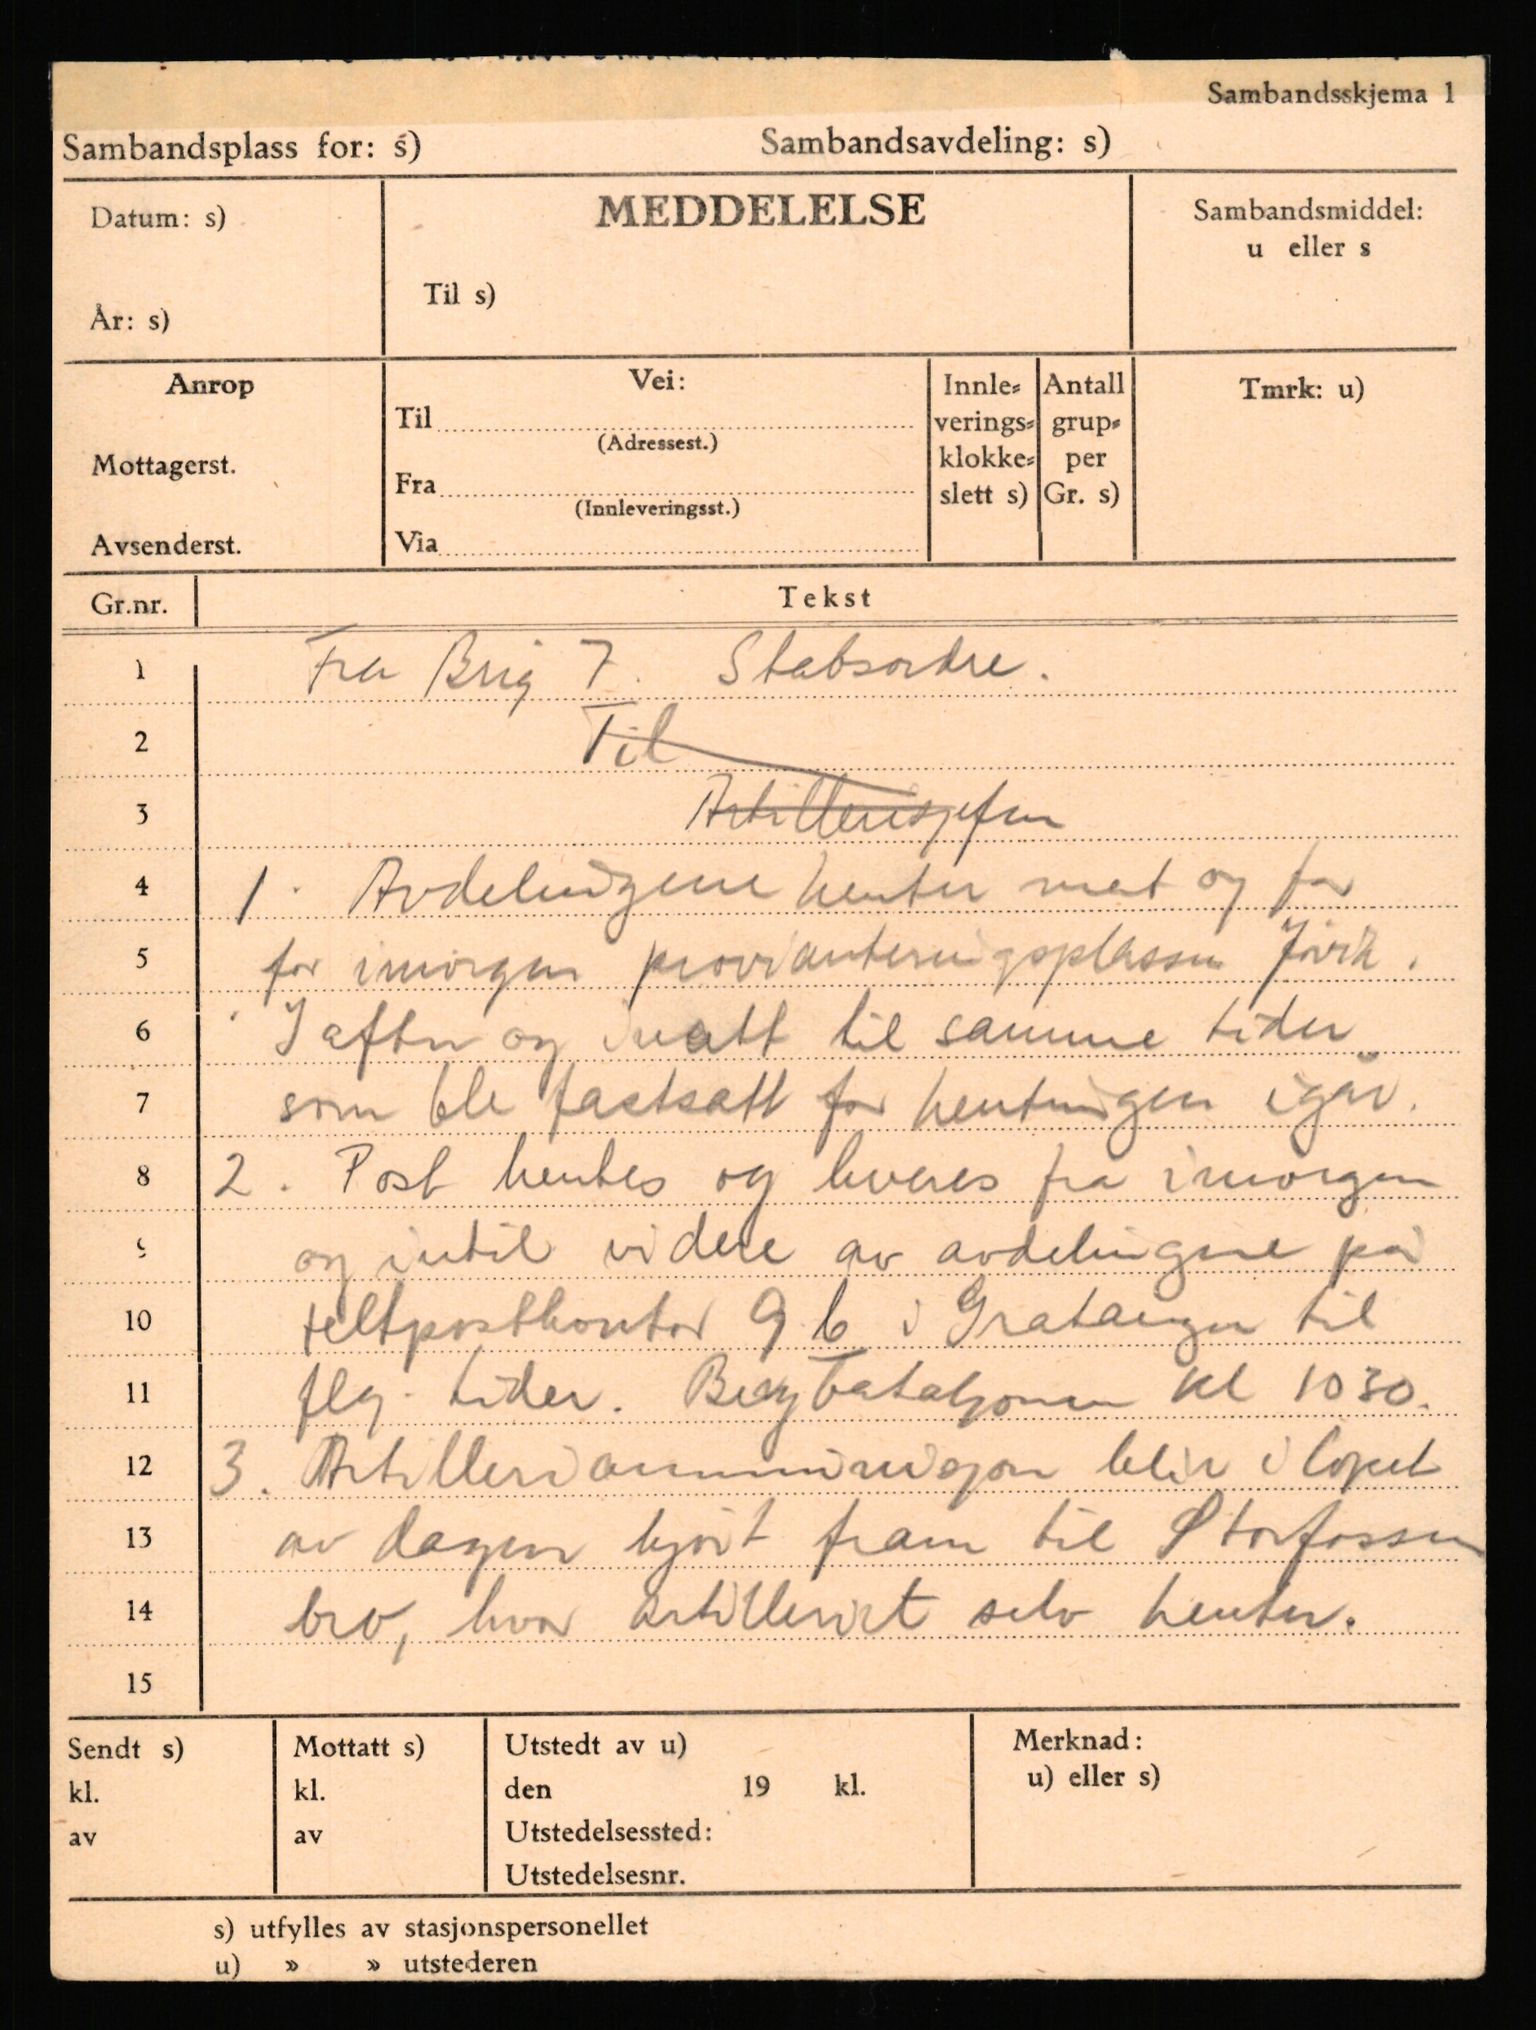 Sambandsskjema 1
Sambandsplass for: s) Sambandsavdeling: s)
Datum: s) MEDDELELSE Sambandsmiddel:
u eller s
Til s)
År: s)
Anrop Vei: Innle= Antall Tmrk: u)
Til verings= grup=
(Adressest.)
Mottagerst. klokke= per
Fra slett s) Gr. s)
(Innleveringsst.)
Avsenderst. Via
Gr.nr. Tekst
1 Fra Brig 7. Stabsordre.
2 Til
3 Artillerisjefen
4 1. Avdelingene henter mat og for
5 for imorgen provianteringsplassen
6 I aften og inatt til samme tider
7 som ble fastsatt for hentningen igår.
8 2. Post hentes og leveres fra imorgen
9 og intil videre av avdelingene på
10 feltpostkontor 9 b i Gratangen til
11 flg. tider. Bergbataljonen kl 1030.
12 3. Artilleriammunisjon blir i løpet
13 av dagen kjørt fram til Storfossen
14 bro, hvor artilleriet selv henter.
15
Sendt s) Mottatt s) Utstedt av u) Merknad:
u) eller s)
kl. kl. den 19 kl.
av av Utstedelsessted:
Utstedelsesnr.
s) utfylles av stasjonspersonellet
u) » » utstederen